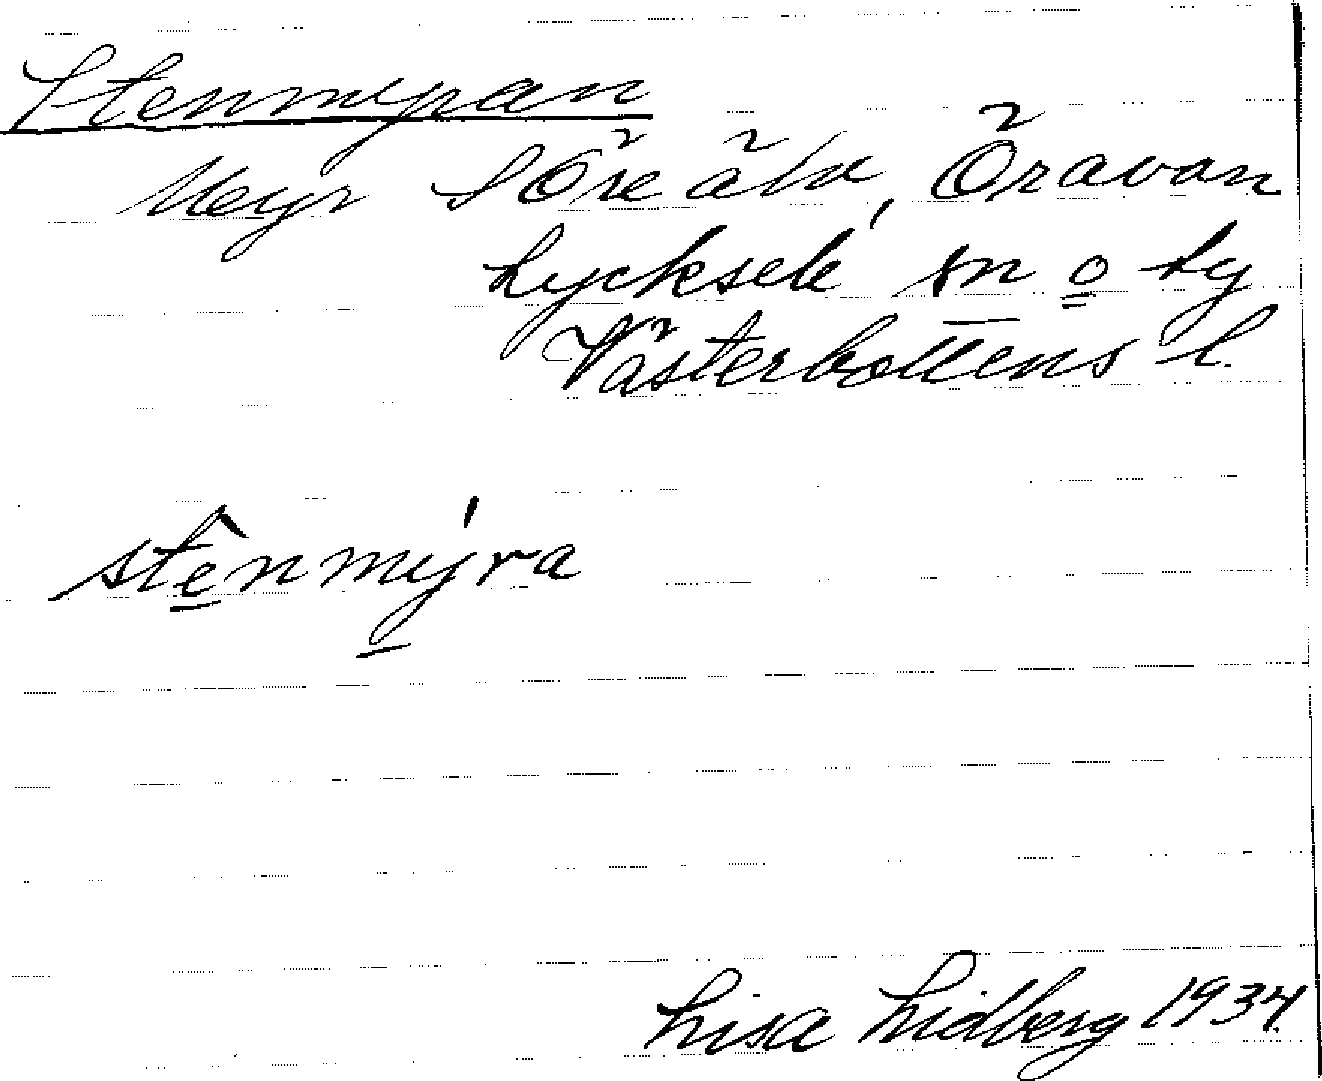 Stenmyran
Myr S Öreälv, Öravan
Lycksele sn o ty
Västerbottens l.
stênmýra
Lisa Lidberg 1934.